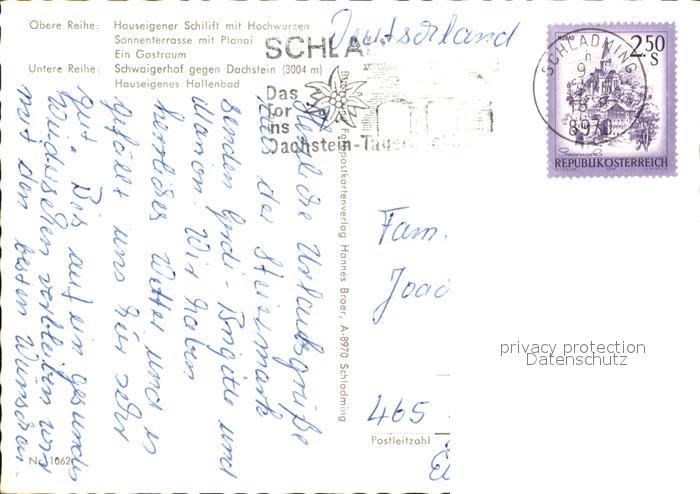 Obere Reihe: Hauseigener Schilift mit Hochwurzen
Sonnenterrasse mit Planai
Ein Gastraum
Untere Reihe: Schwaigerhof gegen Dachstein (3004 m)
Hauseigenes Hallenbad
Deutschland
SCHLA
Das
Tor
ins
Dachstein-Tauern
MURAU
2.50
S
SCHLADMING
8970
REPUBLIK ÖSTERREICH
Herzliche Urlaubsgrüße
aus der Steiermark
senden Gerdi - Brigitte und
Marion. Wir haben
herrliches Wetter und es
gefällt uns hier sehr
gut. Bis auf ein gesundes
Wiedersehen verbleiben wir
mit den besten Wünschen
Fotopostkartenverlag Hannes Broer, A-8970 Schladming
Fam.
Joac
465
Postleitzahl
No. 1062
privacy protection
Datenschutz